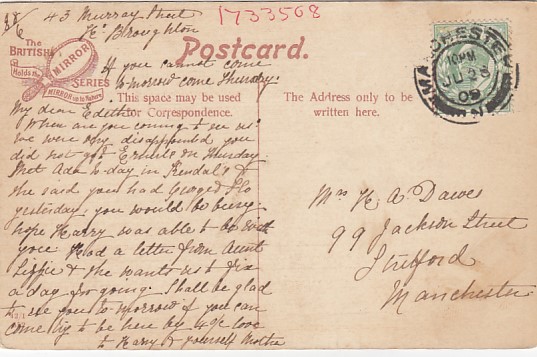 43 Murray Street
Hr. Broughton
1733568
The
BRITISH
Holds the
MIRROR
MIRROR up to Nature
SERIES
Postcard.
If you cannot come
to morrow come Thursday.
This space may be used
for Correspondence.
The Address only to be
written here.
MANCHESTER
JU 28
09
My dear Edith
When are you coming to see us
We were very disappointed you
did not on Thursday
Met Ada to-day in Kendal's &
she said you had Flo
yesterday. you would be busy
hope Harry was able to be with
you. Had a letter from Aunt
Lizzie & she wants us to fix
a day for going. Shall be glad
to see you to morrow if you can
come try to be here by 4 o/c love
to Harry & yourself Mother
Mrs H. A. Dawes
99 Jackson Street
Stretford
Manchester